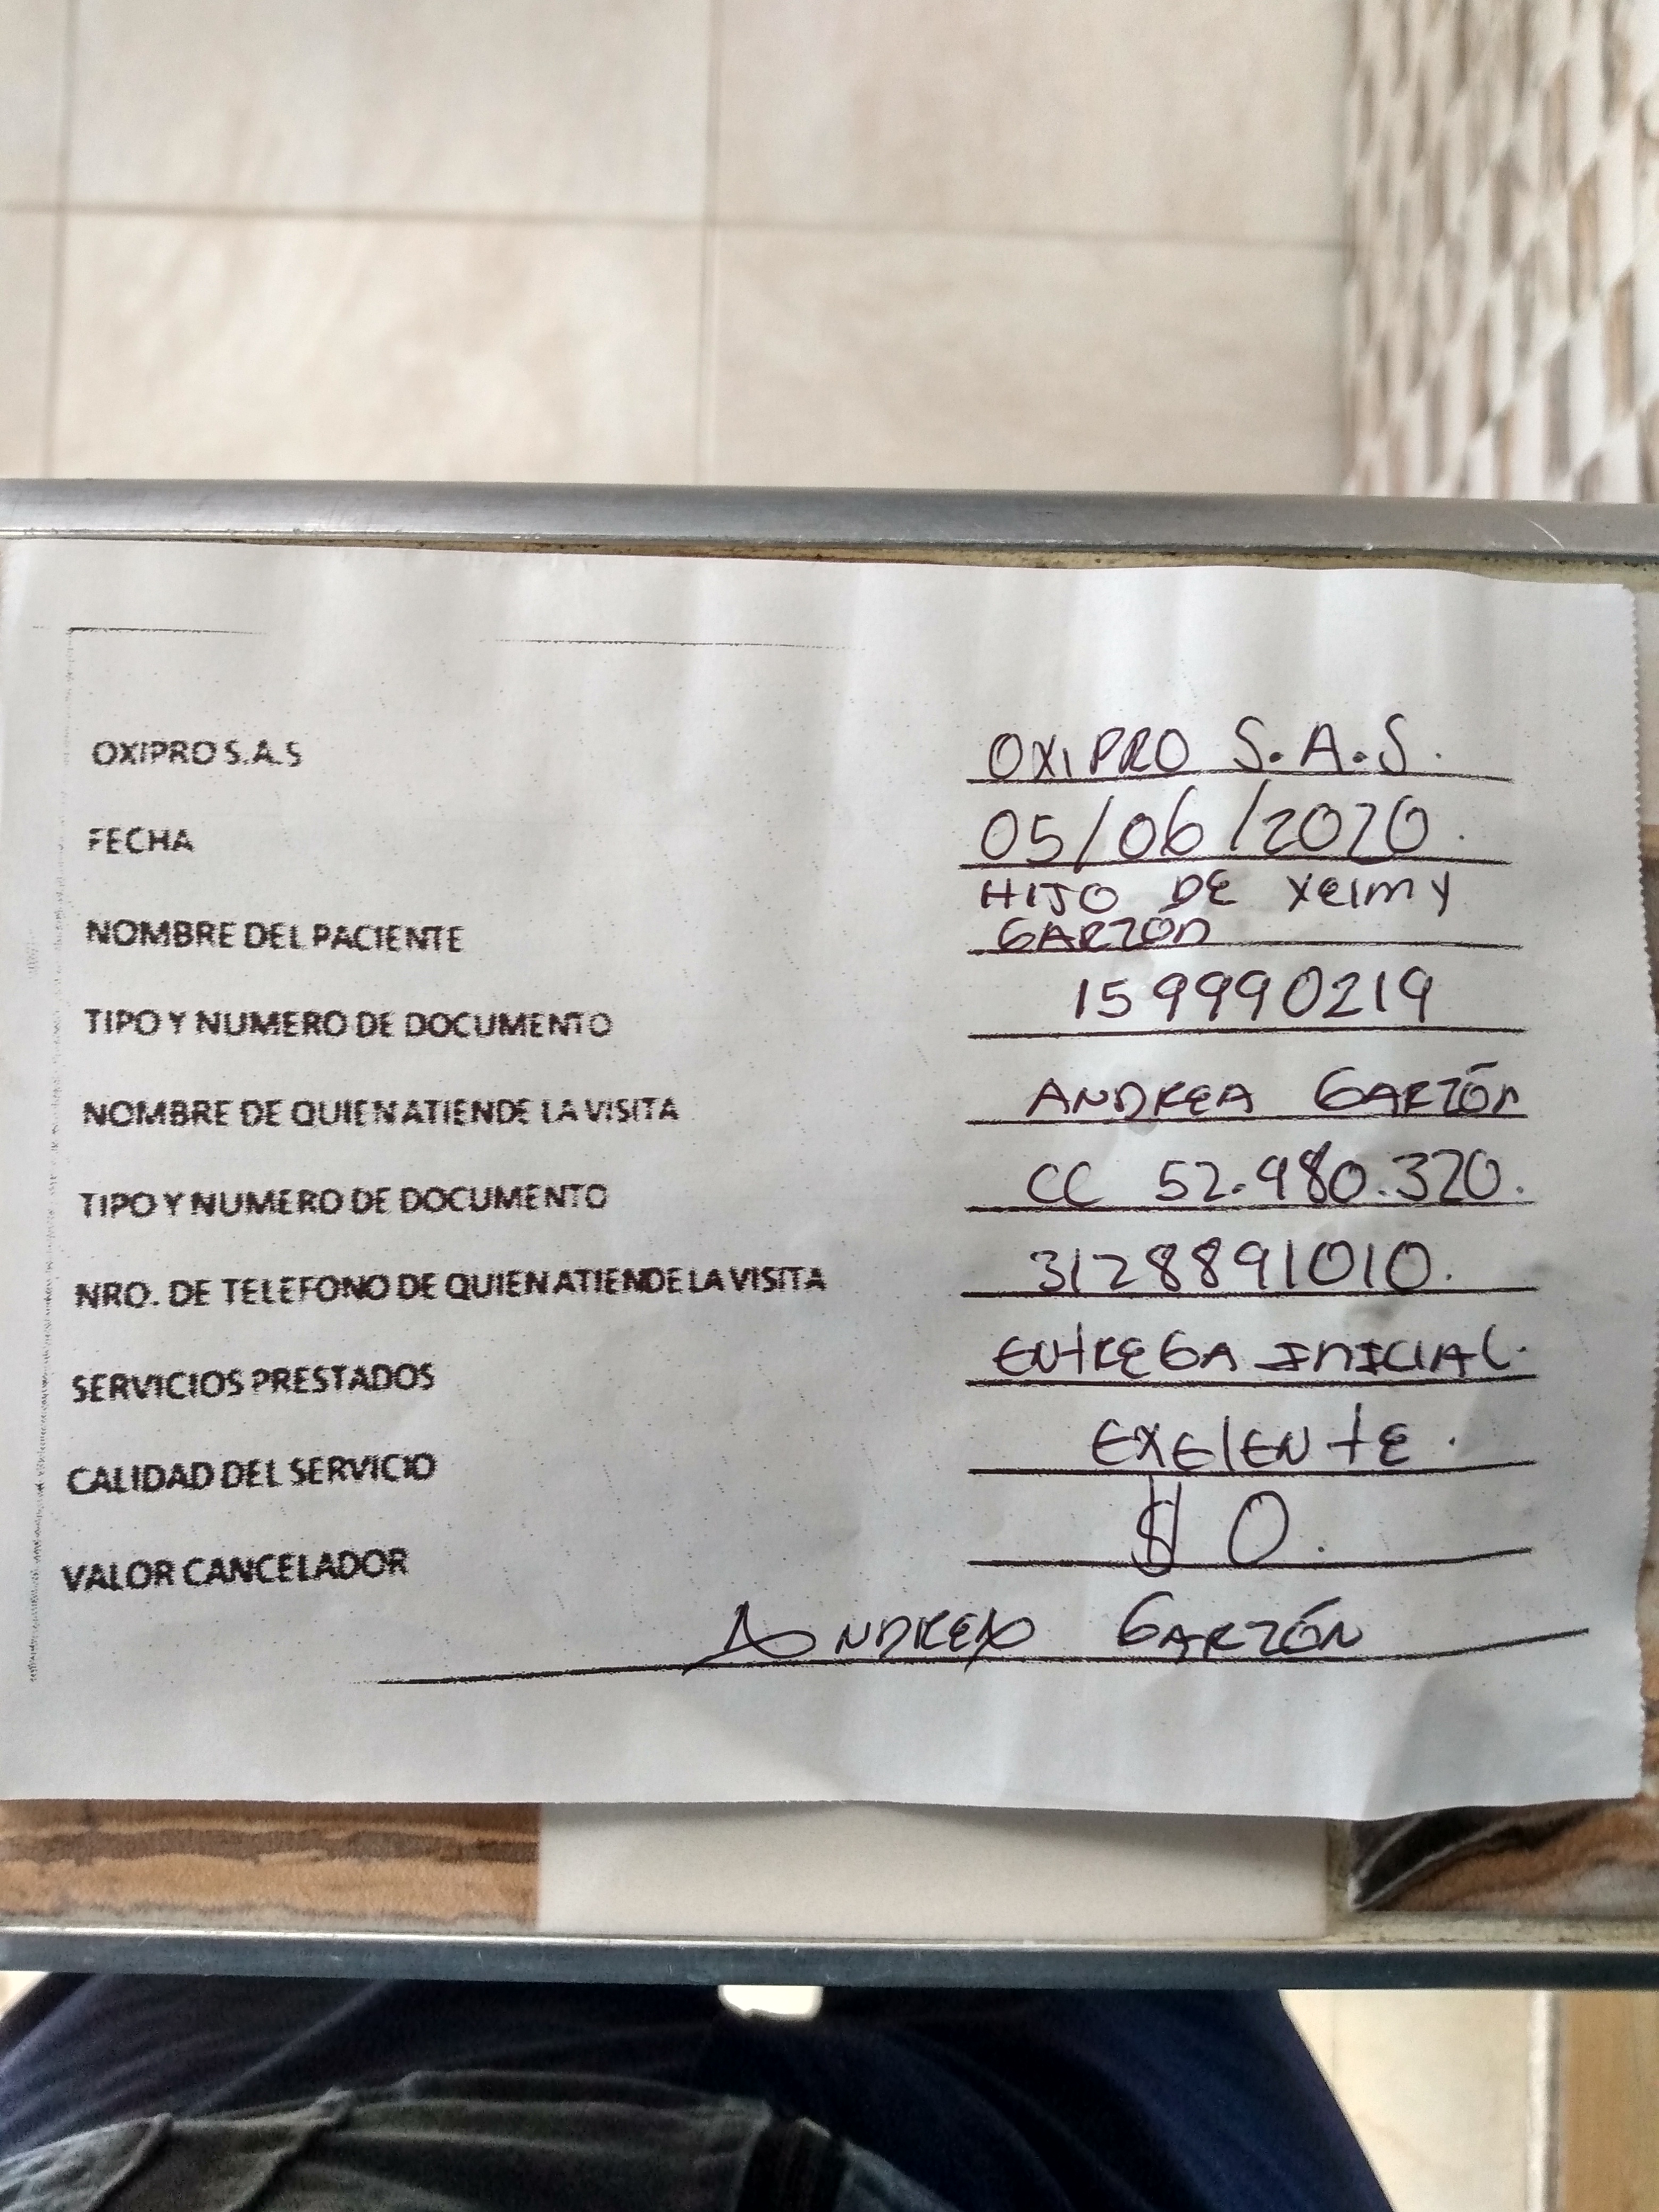 OXIPRO S.A.S OXIPRO S.A.S.
FECHA 05/06/2020.
HIJO DE YEIMY
NOMBRE DEL PACIENTE GARZÓN
TIPO Y NUMERO DE DOCUMENTO 159990219
NOMBRE DE QUIEN ATIENDE LA VISITA ANDREA GARZÓN
TIPO Y NUMERO DE DOCUMENTO CC 52.980.320.
NRO. DE TELEFONO DE QUIEN ATIENDE LA VISITA 3128891010.
SERVICIOS PRESTADOS ENTREGA INICIAL.
CALIDAD DEL SERVICIO EXELENTE.
VALOR CANCELADOR $ 0.
ANDREA GARZÓN